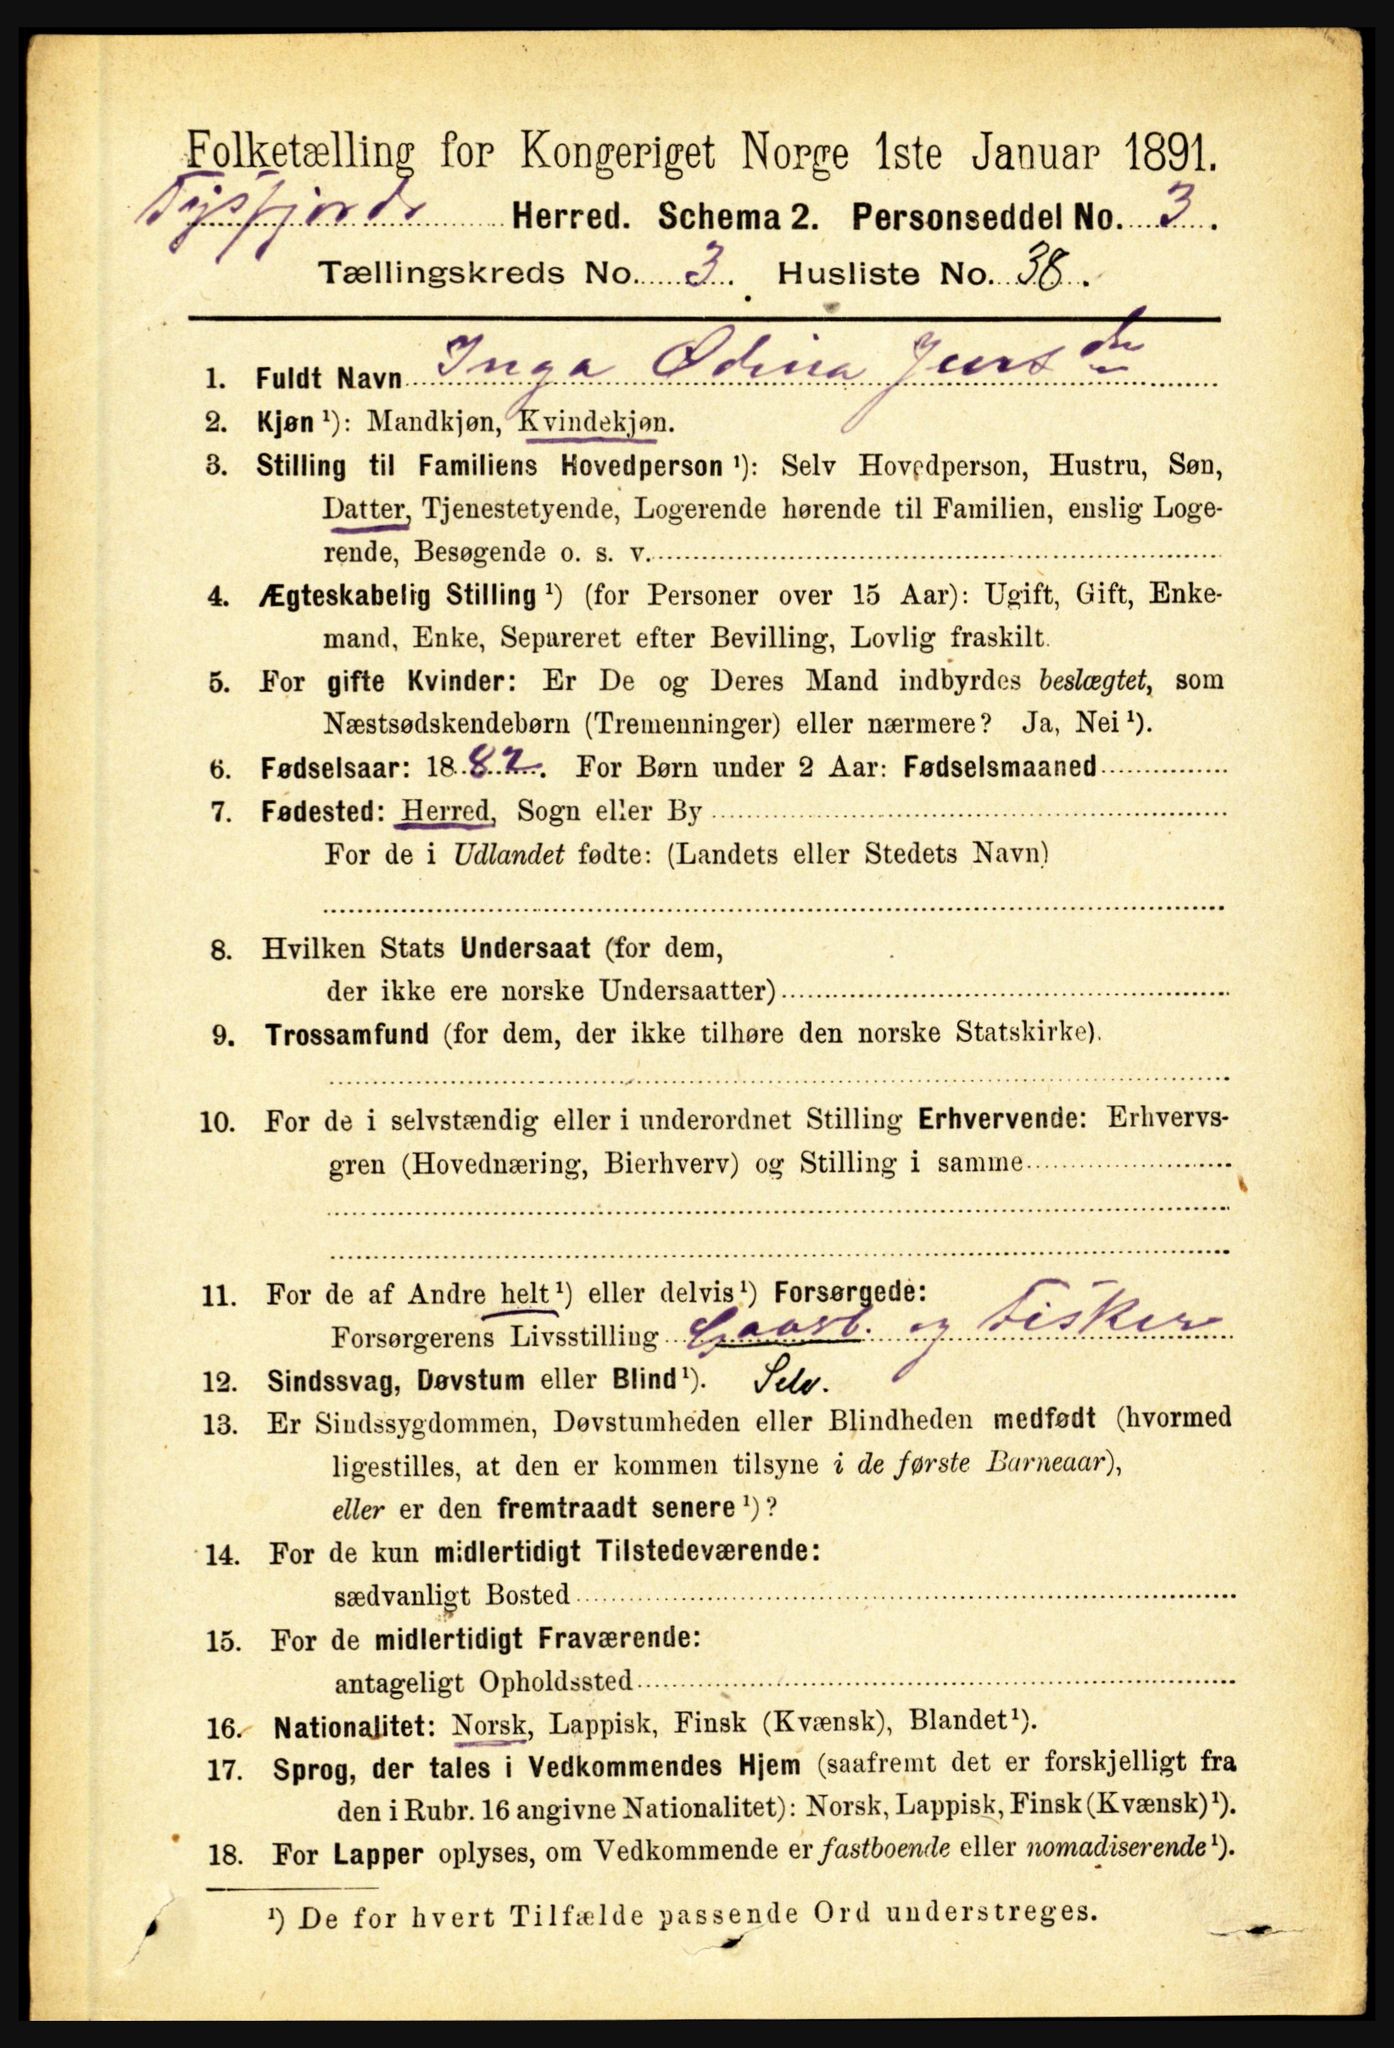 Folketælling for Kongeriget Norge 1ste Januar 1891.
Tysfjords Herred. Schema 2. Personseddel No. 3.
Tællingskreds No. 3. Husliste No. 38.
1. Fuldt Navn Inga Ødina Jensdn
2. Kjøn ¹): Mandkjøn, Kvindekjøn.
3. Stilling til Familiens Hovedperson ¹): Selv Hovedperson, Hustru, Søn,
Datter, Tjenestetyende, Logerende hørende til Familien, enslig Loge-
rende, Besøgende o. s. v.
4. Ægteskabelig Stilling ¹) (for Personer over 15 Aar): Ugift, Gift, Enke-
mand, Enke, Separeret efter Bevilling, Lovlig fraskilt.
5. For gifte Kvinder: Er De og Deres Mand indbyrdes beslægtet, som
Næstsødskendebørn (Tremenninger) eller nærmere? Ja, Nei ¹).
6. Fødselsaar: 1882. For Børn under 2 Aar: Fødselsmaaned
7. Fødested: Herred, Sogn eller By
For de i Udlandet fødte: (Landets eller Stedets Navn)
8. Hvilken Stats Undersaat (for dem,
der ikke ere norske Undersaatter)
9. Trossamfund (for dem, der ikke tilhøre den norske Statskirke).
10. For de i selvstændig eller i underordnet Stilling Erhvervende: Erhvervs-
gren (Hovednæring, Bierhverv) og Stilling i samme
11. For de af Andre helt ¹) eller delvis ¹) Forsørgede:
Forsørgerens Livsstilling Gaarb. og Fisker
12. Sindssvag, Døvstum eller Blind ¹). Selv.
13. Er Sindssygdommen, Døvstumheden eller Blindheden medfødt (hvormed
ligestilles, at den er kommen tilsyne i de første Barneaar),
eller er den fremtraadt senere ¹)?
14. For de kun midlertidigt Tilstedeværende:
sædvanligt Bosted
15. For de midlertidigt Fraværende:
antageligt Opholdssted
16. Nationalitet: Norsk, Lappisk, Finsk (Kvænsk), Blandet ¹).
17. Sprog, der tales i Vedkommendes Hjem (saafremt det er forskjelligt fra
den i Rubr. 16 angivne Nationalitet): Norsk, Lappisk, Finsk (Kvænsk) ¹).
18. For Lapper oplyses, om Vedkommende er fastboende eller nomadiserende ¹).
¹) De for hvert Tilfælde passende Ord understreges.